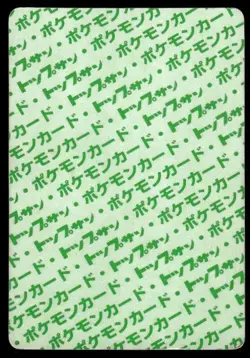 ポケモンカード
トップサン・ポケモンカード
ポケモンカード・トップサン
トップサン・ポケモンカード・
ポケモンカード・トップサン・
トップサン・ポケモンカード
ポケモンカード・トップサン・
トップサン・ポケモンカード・
ポケモンカード・トップサン
トップサン・ポケモンカード
ポケモンカード・トップサン・
トップサン・ポケモンカード
ポケモンカード・トップサン
ポケモンカード